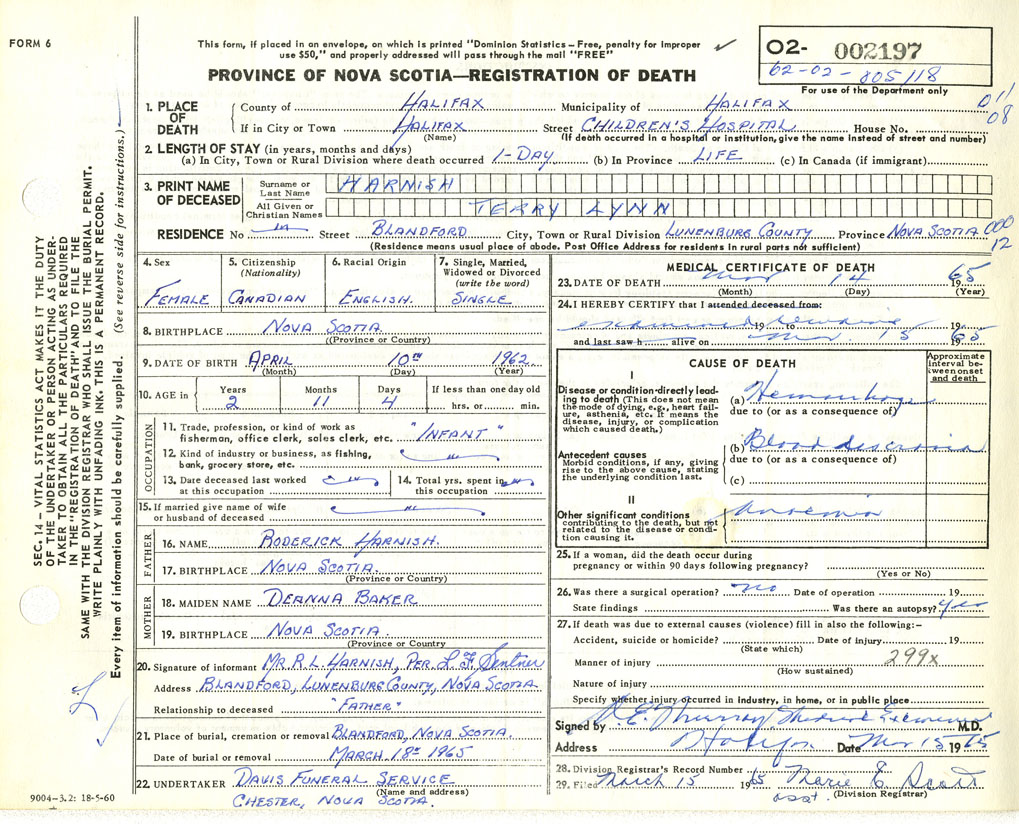 FORM 6
This form, if placed in an envelope, on which is printed "Dominion Statistics – Free, penalty for improper
use $50," and properly addressed will pass through the mail "FREE"
PROVINCE OF NOVA SCOTIA—REGISTRATION OF DEATH
02- 002197
62-02-805118
For use of the Department only
1. PLACE OF DEATH
County of HALIFAX Municipality of HALIFAX 011
If in City or Town HALIFAX Street CHILDREN'S HOSPITAL House No. 08
(Name) (If death occurred in a hospital or institution, give the name instead of street and number)
2. LENGTH OF STAY (in years, months and days)
(a) In City, Town or Rural Division where death occurred 1-DAY (b) In Province LIFE (c) In Canada (if immigrant)
3. PRINT NAME OF DECEASED
Surname or Last Name HARNISH
All Given or Christian Names TERRY LYNN
RESIDENCE No Street BLANDFORD City, Town or Rural Division LUNENBURG COUNTY Province NOVA SCOTIA 000
(Residence means usual place of abode. Post Office Address for residents in rural parts not sufficient) 12
4. Sex FEMALE
5. Citizenship (Nationality) CANADIAN
6. Racial Origin ENGLISH.
7. Single, Married, Widowed or Divorced (write the word) SINGLE
8. BIRTHPLACE NOVA SCOTIA
(Province or Country)
9. DATE OF BIRTH APRIL 10TH 1962
(Month) (Day) (Year)
10. AGE in Years 2 Months 11 Days 4 If less than one day old
hrs. or min.
OCCUPATION
11. Trade, profession, or kind of work as
fisherman, office clerk, sales clerk, etc. "INFANT"
12. Kind of industry or business, as fishing,
bank, grocery store, etc.
13. Date deceased last worked
at this occupation
14. Total yrs. spent in
this occupation
15. If married give name of wife
or husband of deceased
FATHER
16. NAME RODERICK HARNISH.
17. BIRTHPLACE NOVA SCOTIA
(Province or Country)
MOTHER
18. MAIDEN NAME DEANNA BAKER
19. BIRTHPLACE NOVA SCOTIA.
(Province or Country
20. Signature of informant MR. R.L. HARNISH, PER. L F. Sentner
Address BLANDFORD, LUNENBURG COUNTY, NOVA SCOTIA
Relationship to deceased "FATHER"
21. Place of burial, cremation or removal BLANDFORD, NOVA SCOTIA.
Date of burial or removal MARCH 18TH 1965
22. UNDERTAKER DAVIS FUNERAL SERVICE
(Name and address)
CHESTER, NOVA SCOTIA.
MEDICAL CERTIFICATE OF DEATH
23. DATE OF DEATH Mar 14 1965
(Month) (Day) (Year)
24. I HEREBY CERTIFY that I attended deceased from:
examined 19 to 19
and last saw h alive on Mar. 15 1965
CAUSE OF DEATH
Approximate interval between onset and death
I
Disease or condition directly leading to death (This does not mean the mode of dying, e.g., heart failure, asthenia, etc. It means the disease, injury, or complication which caused death.)
(a) Hemorrhage
due to (or as a consequence of)
(b) Blood dyscrasia
due to (or as a consequence of)
Antecedent causes
Morbid conditions, if any, giving rise to the above cause, stating the underlying condition last.
(c)
II
Other significant conditions
contributing to the death, but not related to the disease or condition causing it.
Anaemia
25. If a woman, did the death occur during
pregnancy or within 90 days following pregnancy?
(Yes or No)
26. Was there a surgical operation? No Date of operation 19
State findings Was there an autopsy? Yes
27. If death was due to external causes (violence) fill in also the following:-
Accident, suicide or homicide? Date of injury 19
(State which)
299x
Manner of injury
(How sustained)
Nature of injury
Specify whether injury occurred in industry, in home, or in public place
Signed by Murray Medical Examiner M.D.
Address Halifax Date Mar 15 1965
28. Division Registrar's Record Number
29. Filed March 15 1965 Marie E. Scott
asst. (Division Registrar)
SEC. 14 – VITAL STATISTICS ACT MAKES IT THE DUTY
OF THE UNDERTAKER OR PERSON ACTING AS UNDER-
TAKER TO OBTAIN ALL THE PARTICULARS REQUIRED
IN THE "REGISTRATION OF DEATH" AND TO FILE THE
SAME WITH THE DIVISION REGISTRAR WHO SHALL ISSUE THE BURIAL PERMIT.
WRITE PLAINLY WITH UNFADING INK. THIS IS A PERMANENT RECORD.
Every item of information should be carefully supplied. (See reverse side for instructions.)
9004-3.2: 18-5-60